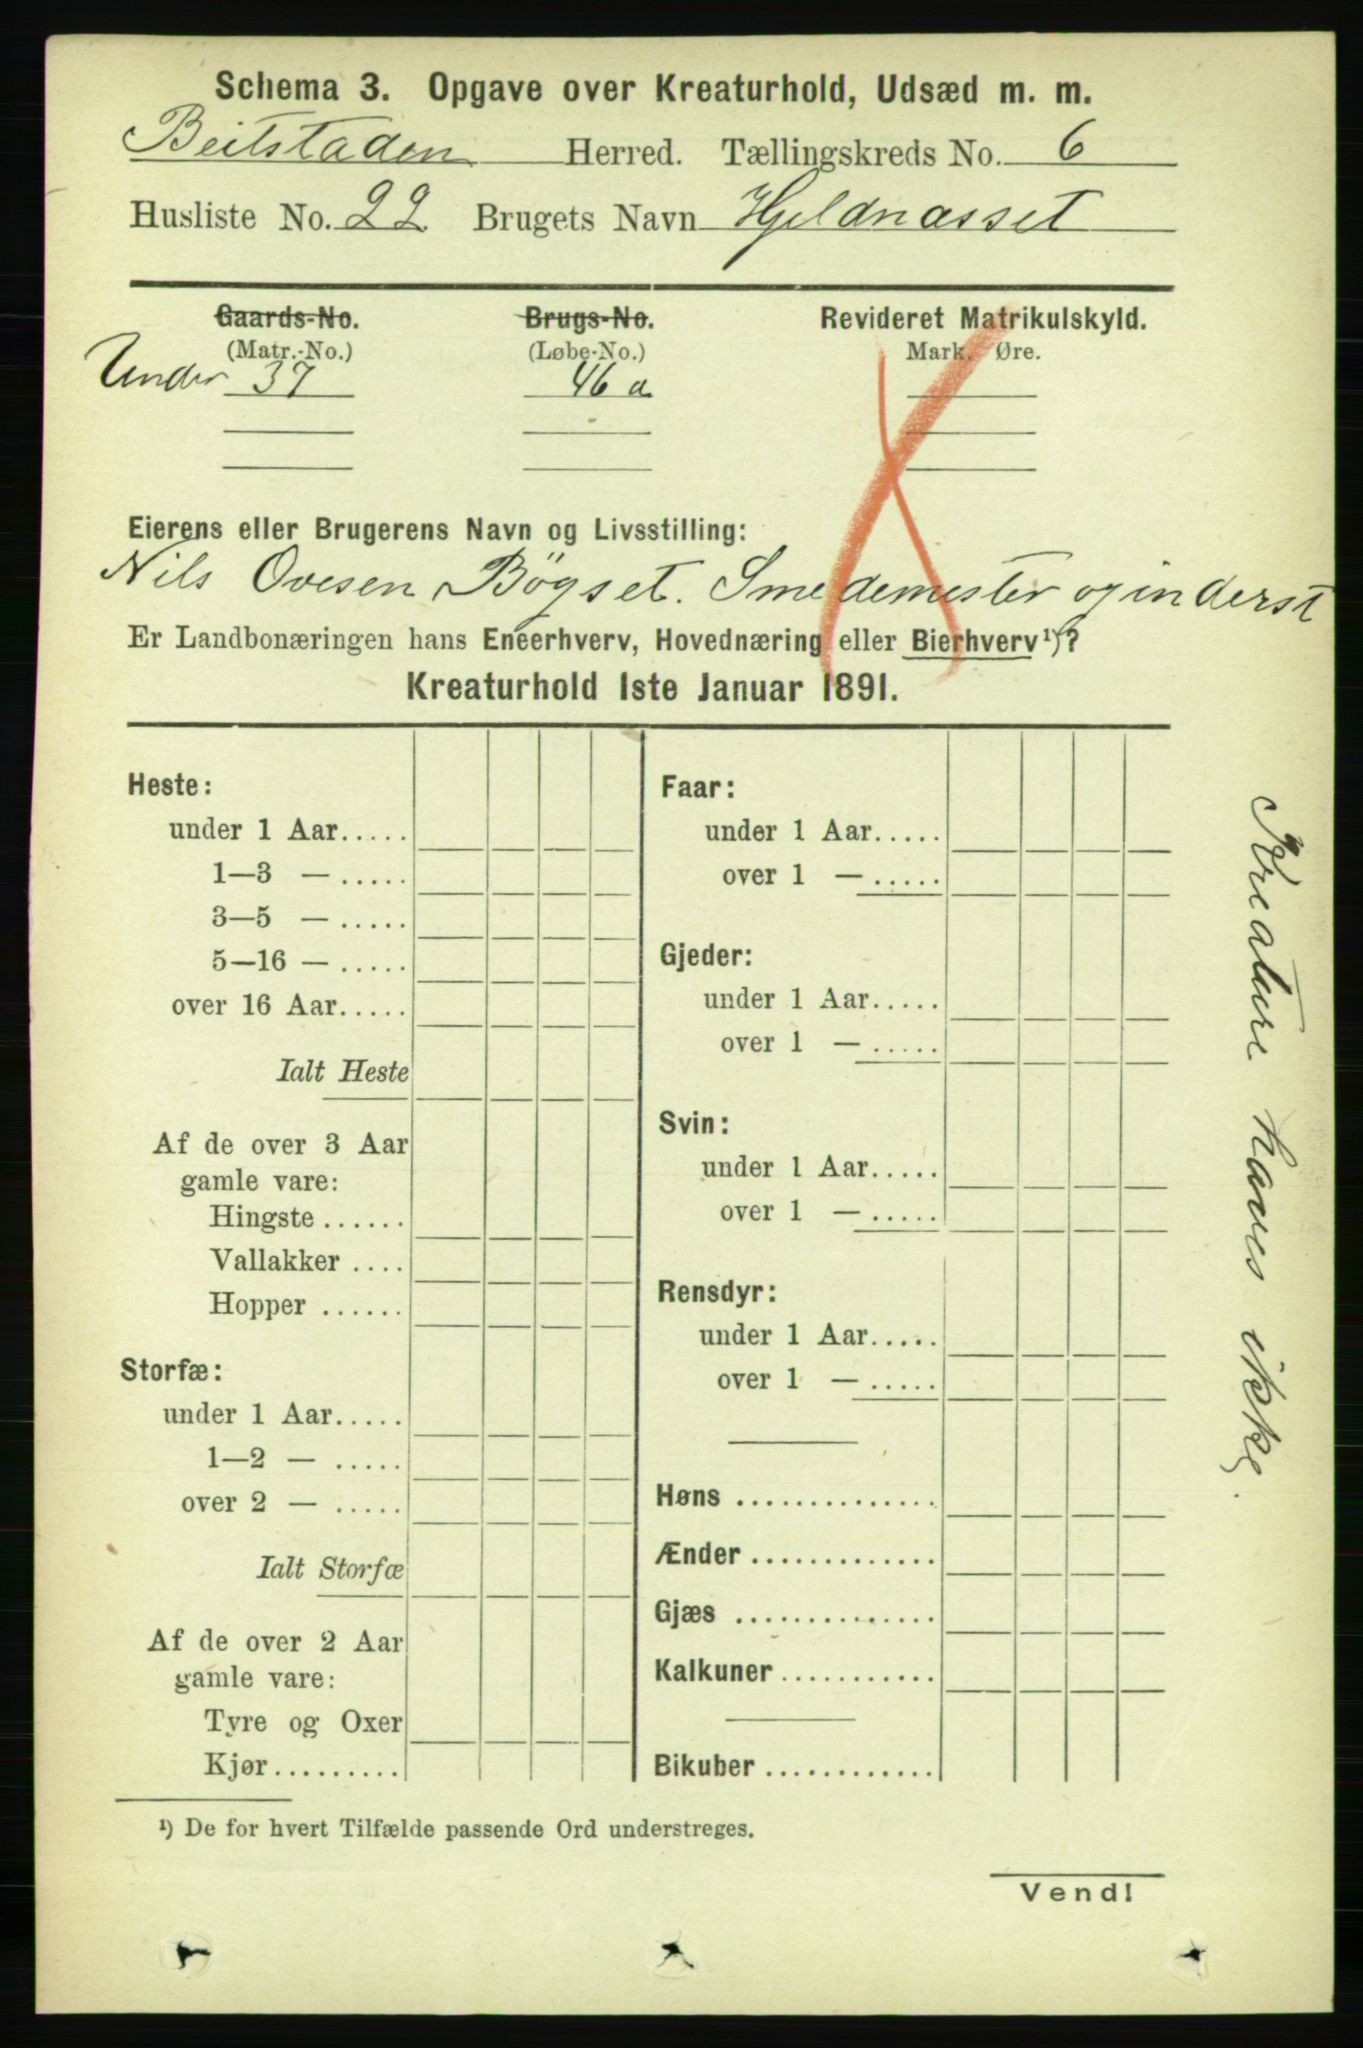 Schema 3. Opgave over Kreaturhold, Udsæd m. m.
Beitstaden Herred. Tællingskreds No. 6
Husliste No. 22 Brugets Navn Hjeldnasset
Gaards-No. Brugs-No. Revideret Matrikulskyld.
(Matr.-No.) (Løbe-No.) Mark. Øre.
Under 37 46 a
Eierens eller Brugerens Navn og Livsstilling:
Nils Ovesen Bögset. Smedemester og inderst
Er Landbonæringen hans Eneerhverv, Hovednæring eller Bierhverv ¹)?
Kreaturhold 1ste Januar 1891.
Heste:
under 1 Aar.....
1—3 — .....
3—5 — .....
5—16 — .....
over 16 Aar.....
Ialt Heste
Af de over 3 Aar
gamle vare:
Hingste ......
Vallakker ....
Hopper ......
Storfæ:
under 1 Aar.....
1—2 — .....
over 2 — .....
Ialt Storfæ
Af de over 2 Aar
gamle vare:
Tyre og Oxer
Kjør.........
Faar:
under 1 Aar.....
over 1 — .....
Gjeder:
under 1 Aar.....
over 1 — .....
Svin:
under 1 Aar.....
over 1 — .....
Rensdyr:
under 1 Aar.....
over 1 — .....
Høns ..............
Ænder .............
Gjæs ..............
Kalkuner...........
Bikuber ............
Kreature haves ikke.
¹) De for hvert Tilfælde passende Ord understreges.
Vend!